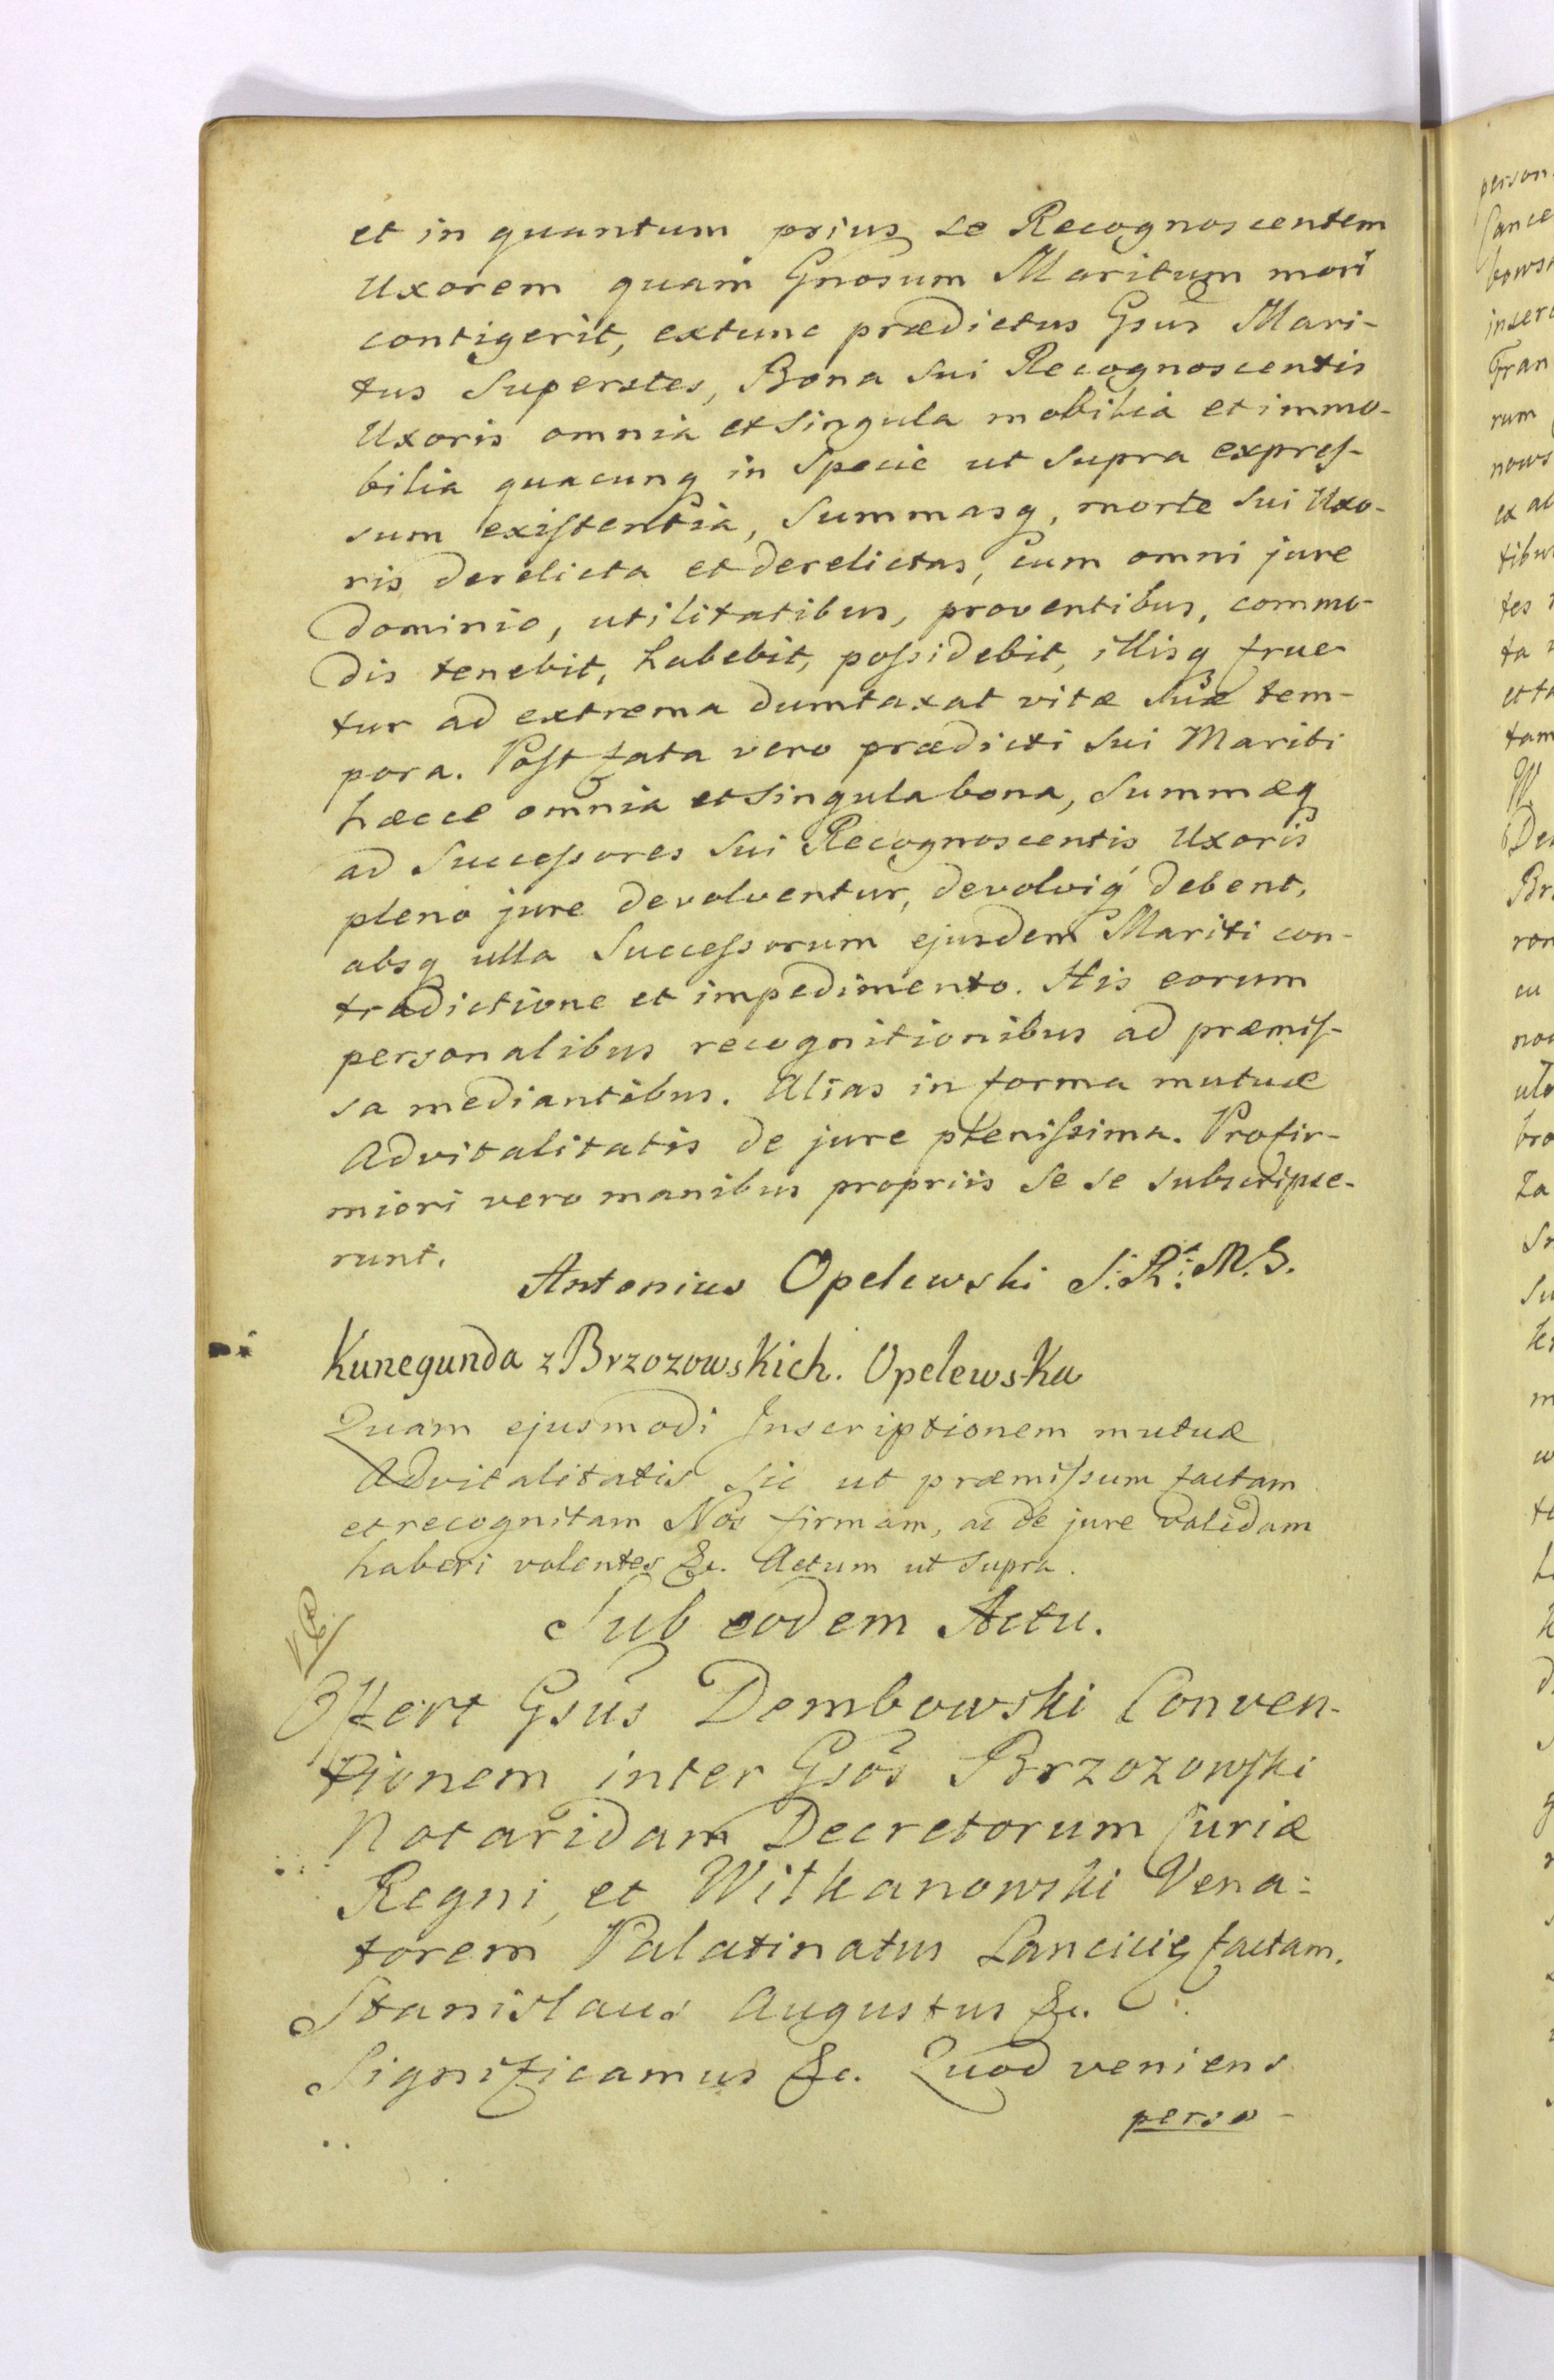 et in quantum prius se Recognoscentem
Uxorem quam Gnosum Maritum mori
contigerit, extunc prædictus Gsus Mari-
tus Superstes, Bona sui Recognoscentis
Uxoris omnia et singula mobilia et immo-
bilia quacunq in Specie ut supra expres-
sum existentia, Summasq, morte sui Uxo-
ris derelicta et derelictas, cum omni jure
dominio, utilitatibus, proventibus, commo-
dis tenebit, habebit, possidebit, illisq frue-
tur ad extrema dumtaxat vitæ suæ tem-
pora. Post fata vero prædicti sui Mariti
hæcce omnia et singula bona, Summæq
ad Successores sui Recognoscentis Uxoris
pleno jure devolventur, devolviq debent,
absq ulla Successorum ejusdem Mariti con-
tradictione et impedimento. His eorum
personalibus recognitionibus ad præmis-
sa mediantibus. Alias in forma mutuæ
Advitalitatis de jure plenissima. Profir-
miori vero manibus propriis se se subscripse-
runt.
Antonius Opelewski S: R: M. S.
Kunegunda z Brzozowskich. Opelewska
Quam ejusmodi Inscriptionem mutuæ
Advitalitatis sic ut præmissum factam
et recognitam Nos firmam, ac de jure validam
haberi volentes &c. Actum ut supra.
Sub eodem Actu.
Offert Gsus Dembowski Conven-
tionem inter Gsos Brzozowski
Notarium Decretorum Curiæ
Regni, et Witkanowski Vena-
torem Palatinatus Lancicię factam.
Stanislaus Augustus &c.
Significamus &c. Quod veniens
perso-
person
Cance
bowsk
inser
Fran
rum
nows
ex al
tibus
tes
ta
et ta
tam